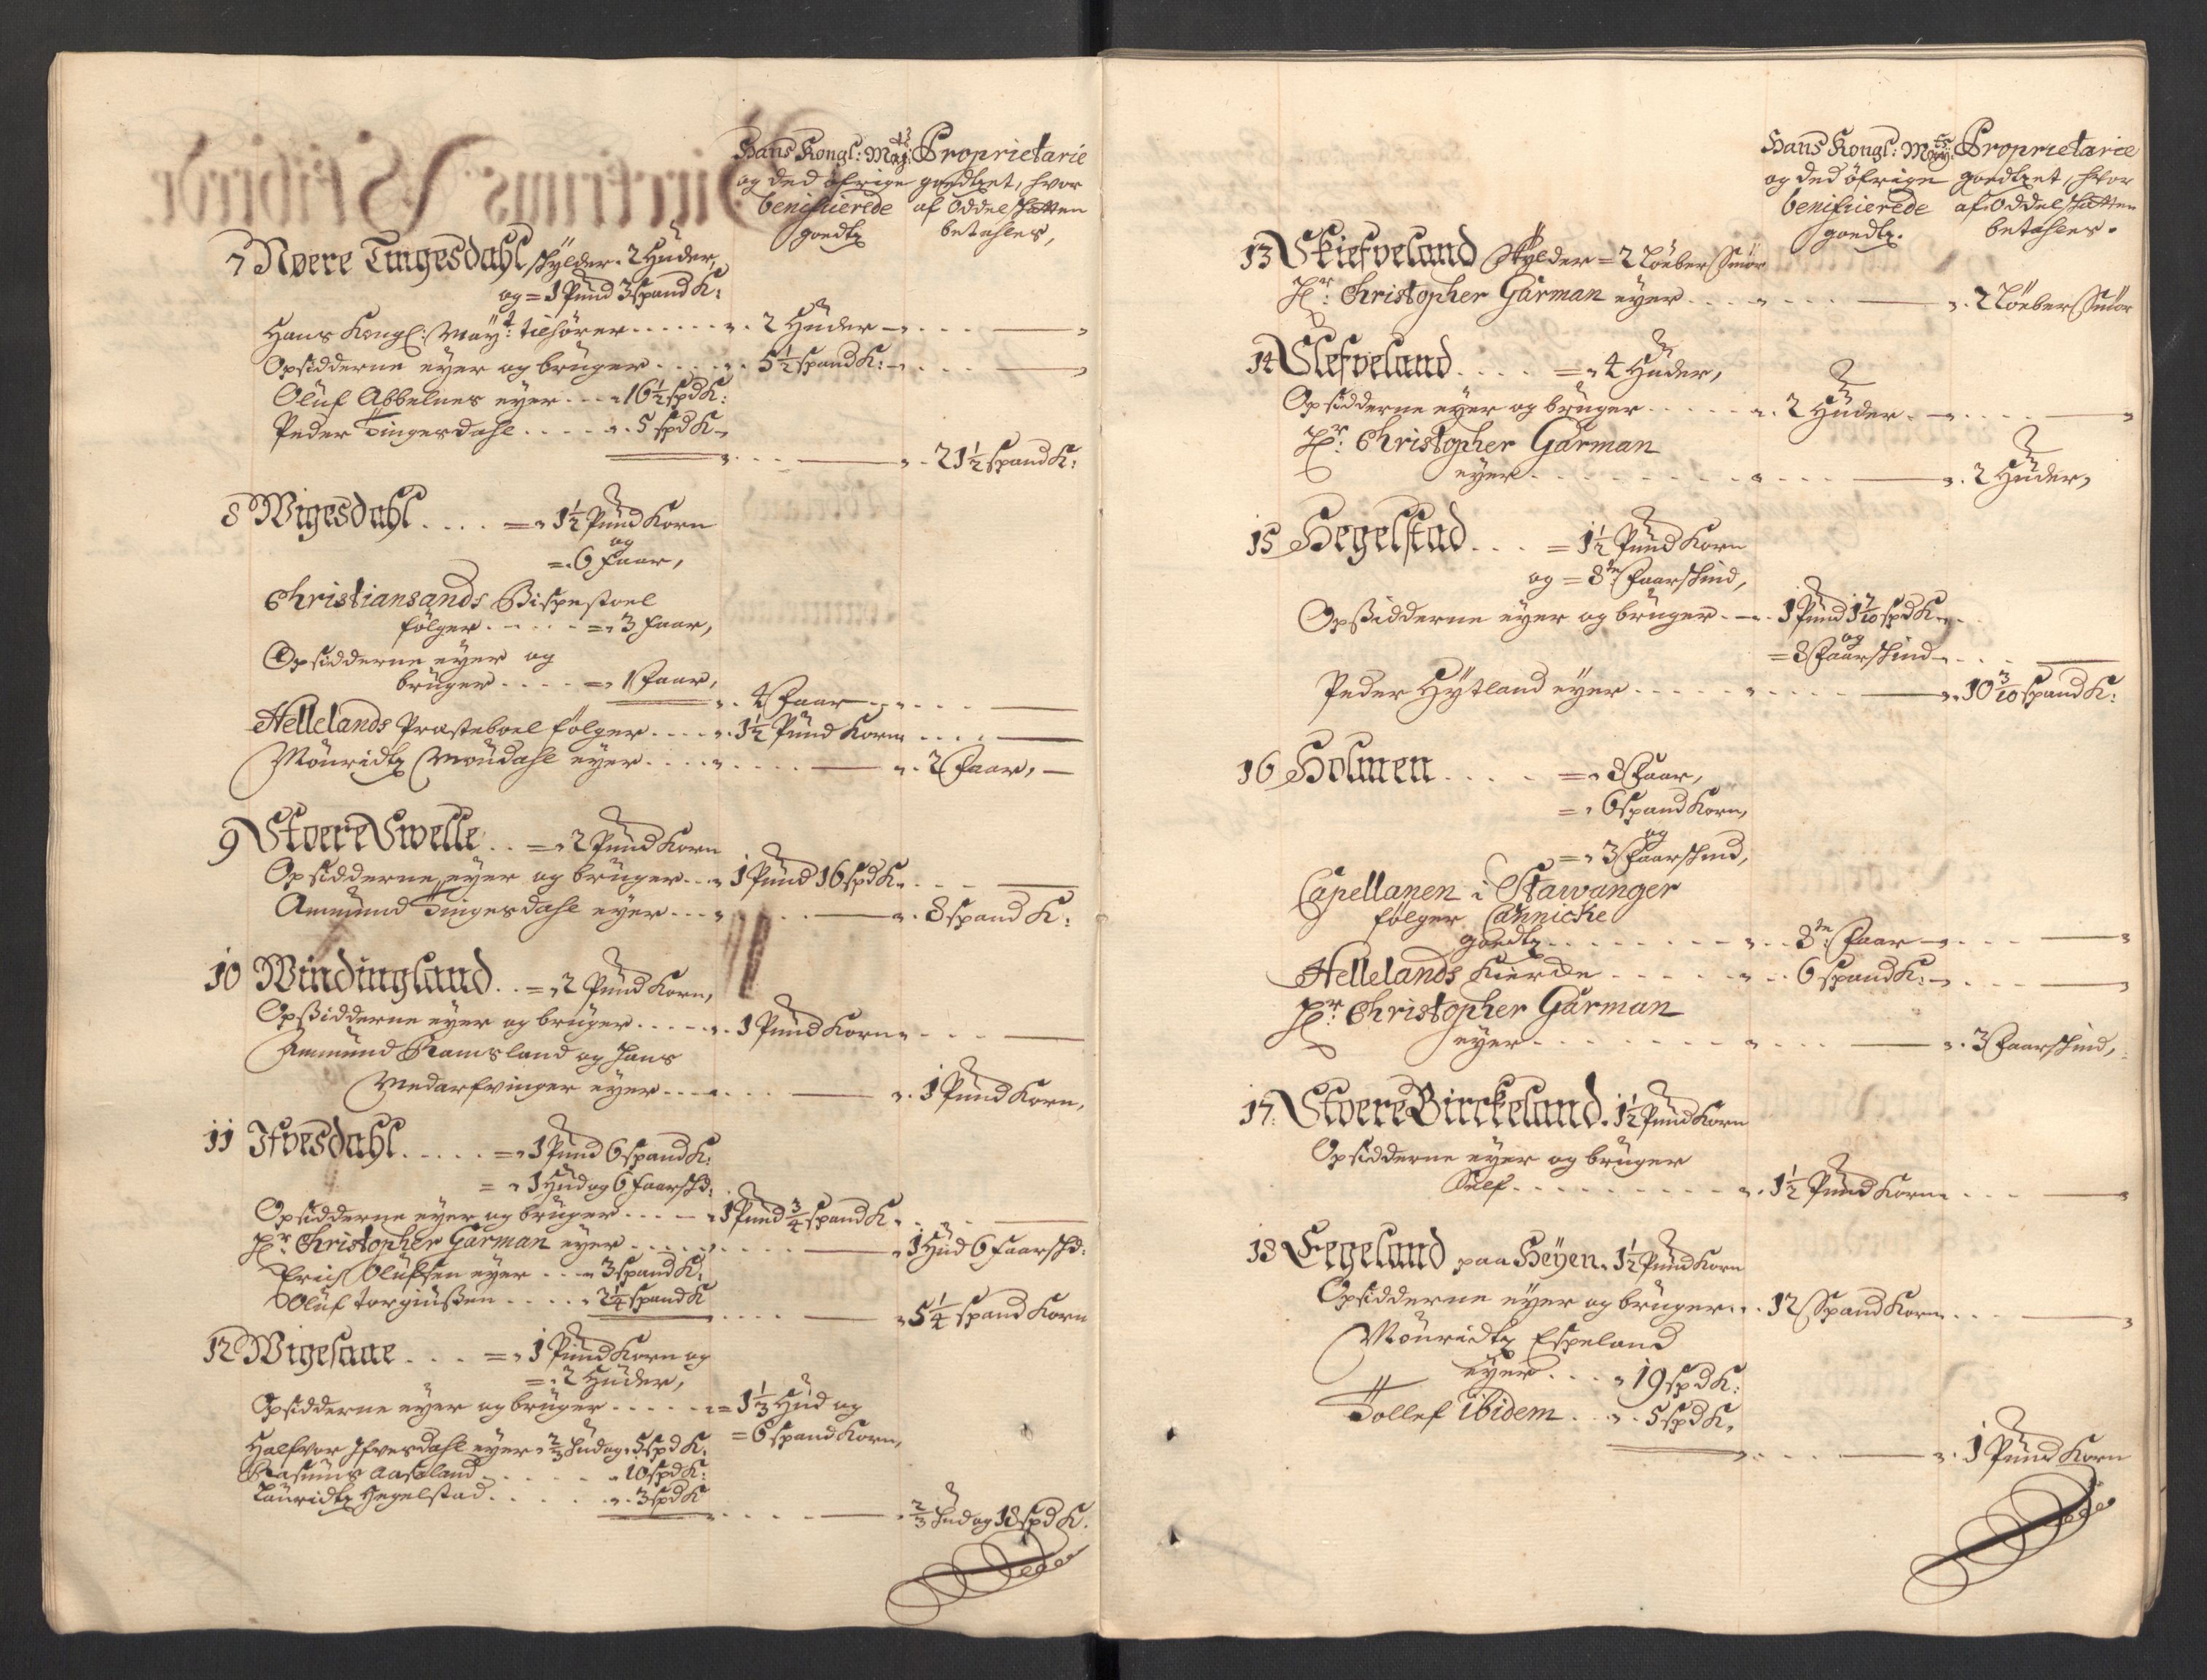 Hans Kongl: May:ts Proprietarie
og ded öfrige goedtzet, hvor
benificerede af Oddelskatten
goedtz betahles,
7 Nøere Tingesdahl skylder. 2 Huder,
og = 1 Pund 3 spand K:
Hans Kongl: May:t tilhører . . . . . . 2 Huder
Opsidderne eyer og bruger . . . . 5 1/2 spand K:
Oluf Abbelnes eyer . . . 16 1/2 spd K:
Peder Tingesdahl . . . . 5 spd K
21 1/2 spand K:
8 Wigesdahl . . . . = 1 1/2 Pund Korn
og
= 6 faar,
Christiansands Bispestoel
følger . . . . . = 3 faar,
Opsidderne eyer og
bruger . . . . = 1 faar,
4 faar
Hellelands Præsteboel følger . . . . 1 1/2 Pund Korn
Mouridtz Moudahl eyer . . . . 2 faar,
9 Stoere Swelle . . = 2 Pund Korn
Opsidderne eyer og bruger . . . 1 Pund 16 spd K
Ammund Tingesdahl eyer . . . 8 spand K:
10 Windingland . . = 2 Pund Korn,
Opsidderne eyer og bruger . . . . . 1 Pund Korn
Ammund Ramsland og Hans
Medarfvinger eyer . . . . 1 Pund Korn,
11 Ifvesdahl . . . . . = 1 Pund 6 spand K:
= 1 Hud og 6 faarskd:
Opsidderne eyer og bruger . . . . 1 Pund 3/4 spand K
Hr: Christopher Garman eyer . . . . . 1 Hud 6 faarskd:
Erich Olufsen eyer . . . 3 spand K:
Oluf Torgiussen . . . . . 2 1/4 spand K
5 1/4 spand Korn
12 Wigesaae . . . . = 1 Pund Korn og
= 2 Huder,
Opsidderne eyer og bruger . . . . . = 1 1/3 Hud og
= 6 spand Korn,
Halfvor Ifvesdahl eyer 2/3 Hud og 5 spd K.
Rasmus Aaseland . . . . . 10 spd K:
Lauridtz Hegelstad . . . . . 3 spd K
2/3 Hud og 18 spd K.
Hans Kongl: May:ts Proprietarie
og ded öfrige goedtzet, hvor
benificierede af Oddelskatten
goedtz. betahles.
13 Skiefveland Skylder = 2 Löeber Smör
Hr: Christopher Garman eyer . . . . 2 Löeber Smör
14 Slefveland . . . . = 4 Huder,
Opsidderne eyer og bruger . . . . . 2 Huder
Hr: Christopher Garman
eyer . . . . . . . . 2 Huder,
15 Hegelstad . . . = 1 1/2 Pund Korn
og = 8te faarskind,
Opsidderne eyer og bruger . . . 1 Pund 1 7/10 spd K
og
= 8 faarskind
Peder Hytland eyer . . . . . 10 3/10 spand K:
16 Holmen . . . . = 8 faar,
= 6 spand Korn,
og
= 3 faarskind,
Capellanen i Stawanger
følger Cannicke
goedtz . . . . . . . . 8te faar
Hellelands Kierke . . . . . 6 spand K:
Hr: Christopher Garman
eyer . . . . . . . . 3 faarskind,
17. Stoere Birckeland. 1 1/2 Pund Korn
Opsidderne eyer og bruger
Self . . . . . . . . . 1 1/2 Pund Korn
18 Eegeland paa Heyen. 1 1/2 Pund Korn
Opsidderne eyer og bruger . . 12 Spand Korn
Mouridtz Espeland
eyer . . . 19 spd K:
Tollef ibidem . . . 5 spd K.
1 Pund Korn